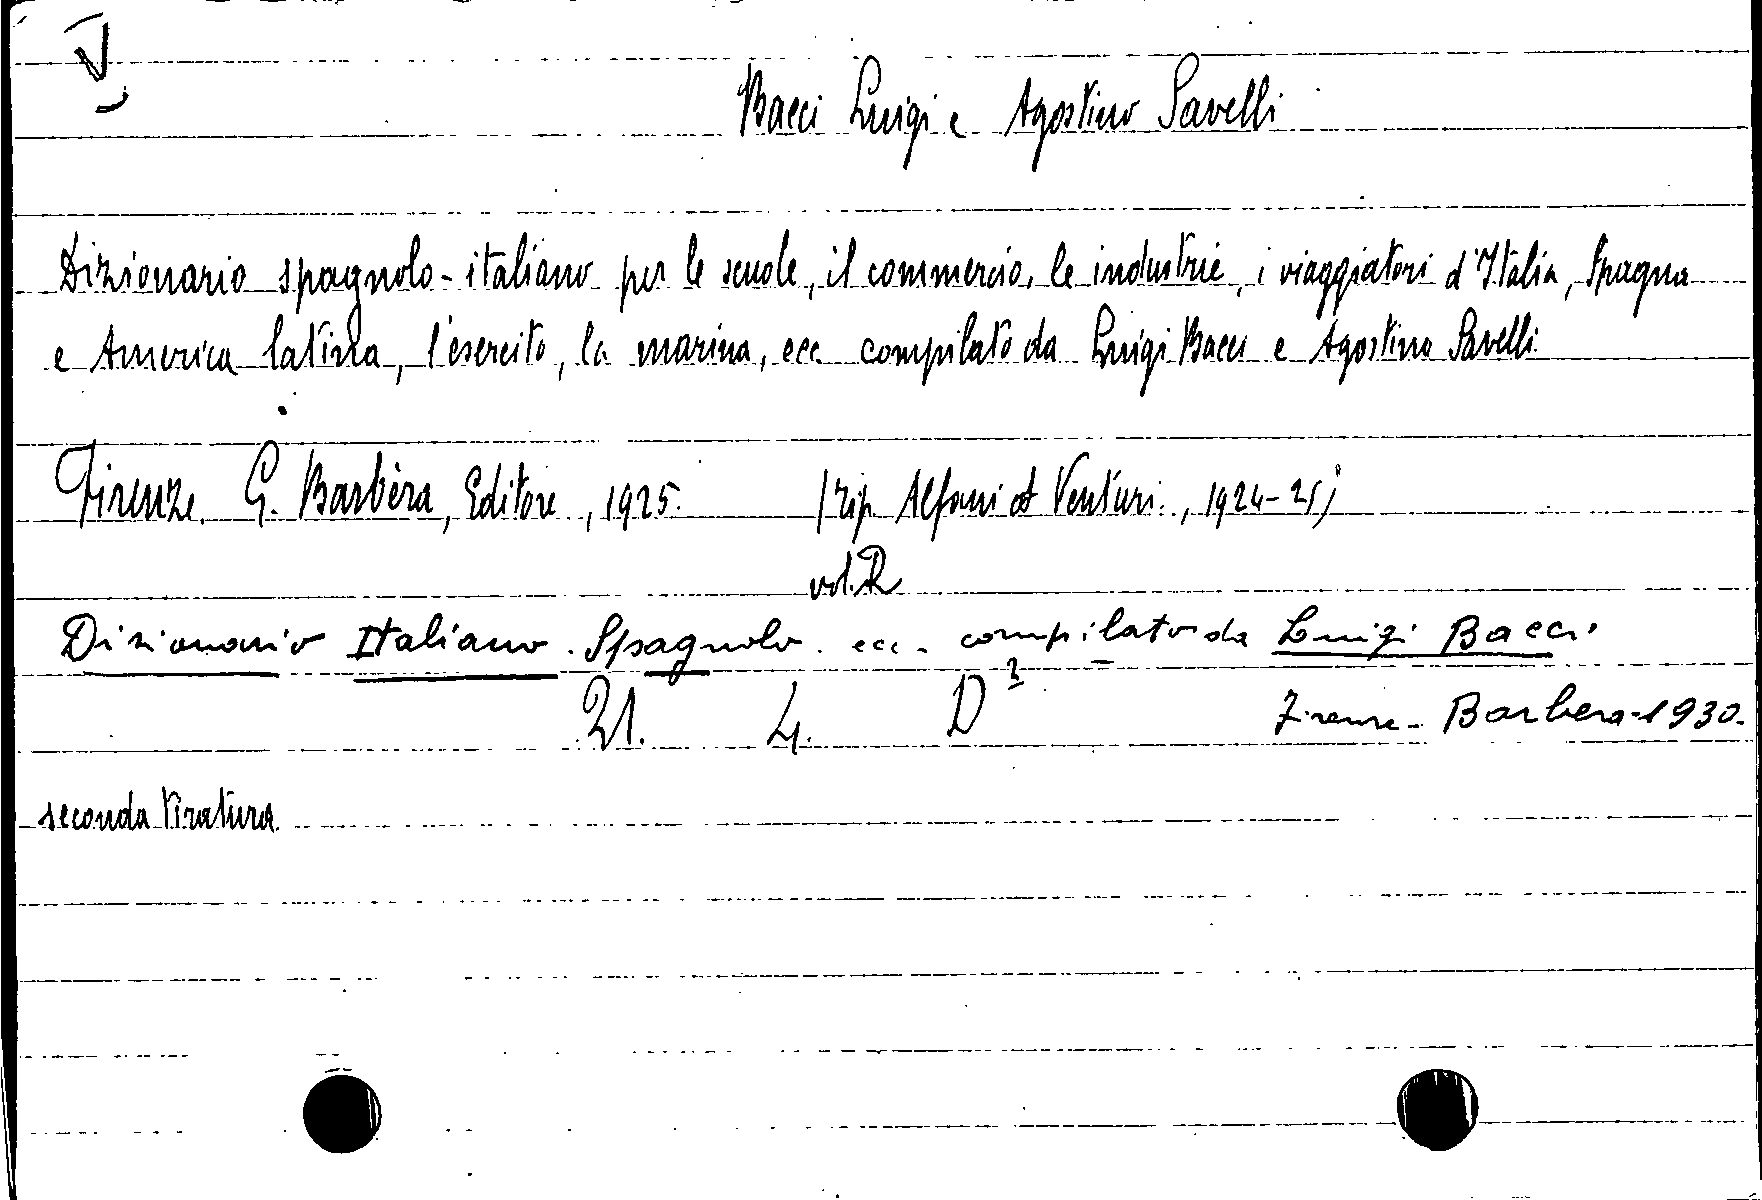 V
Bacci Luigi e Agostino Savelli
Dizionario spagnolo-italiano per le scuole, il commercio, le industrie, i viaggiatori d'Italia, Spagna
e America latina, l'esercito, la marina, ecc. compilato da Luigi Bacci e Agostino Savelli
Firenze. G. Barbèra, Editore, 1925. (tip. Alfani et Venturi., 1924-25)
vol.
Dizionario Italiano. Spagnolo. ecc. compilato da Luigi Bacci.
21. 4. D
Firenze - Barbera - 1930.
seconda tiratura.